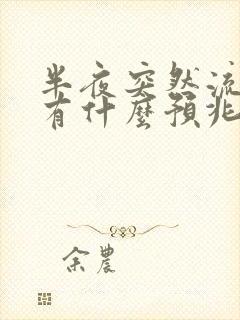 半夜突然流
有什麼預兆
余農